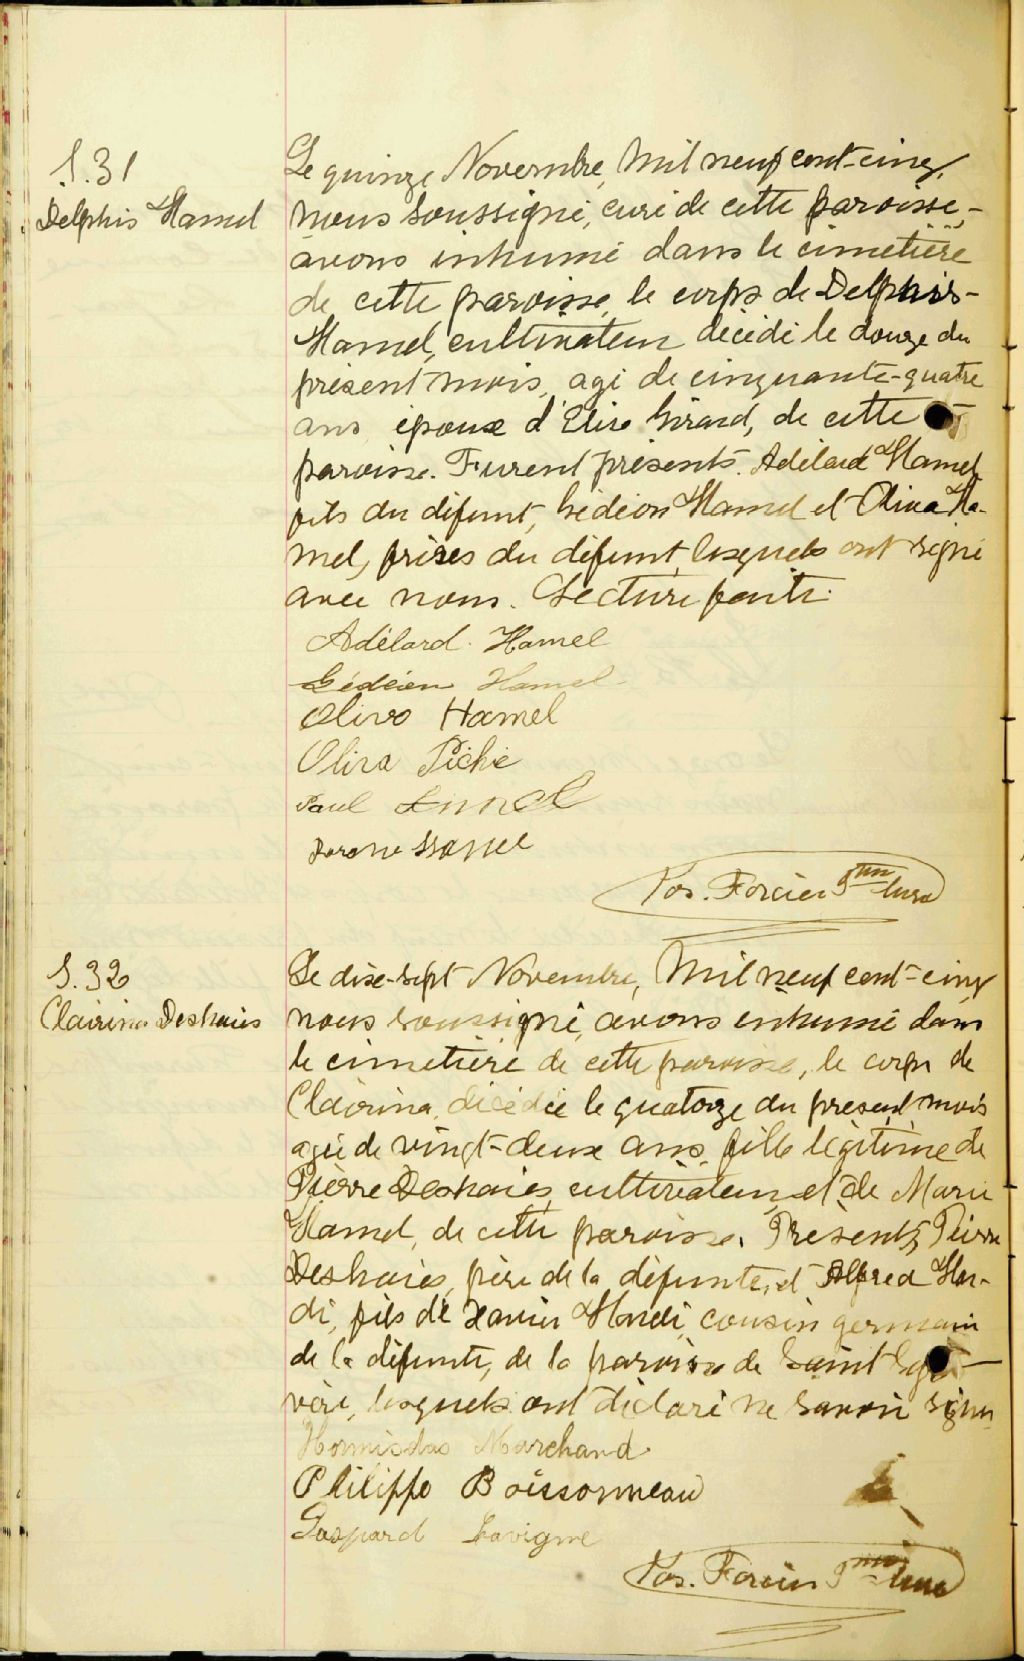 S.31
Delphis Hamel
Le quinze Novembre, Mil neuf cent-cinq,
nous soussigné, curé de cette paroisse,-
avons inhumé dans le cimetière
de cette paroisse, le corps de Delphis-
Hamel, cultivateur décédé le douze du
présent mois, agé de cinquante-quatre
ans, époux d'Elise Girard, de cette
paroisse. Furent présents. Adélard Hamel
fils du défunt, Gédéon Hamel et Oliva Ha-
mel, frères du défunt, lesquels ont signé
avec nous. Lecture faite.
Adélard Hamel
Gédéon Hamel
Olivo Hamel
Oliva Piché
Paul
Jos. Forcier Ptre Curé
S.32
Clairina Deshaies
Le dix-sept Novembre, Mil neuf cent-cinq
nous soussigné, avons inhumé dans
le cimetière de cette paroisse, le corps de
Clairina, décédée le quatorze du présent mois
agée de vingt-deux ans, fille légitime de
Pierre Deshaies, cultivateur, et de Marie
Hamel, de cette paroisse. Présents, Pierre
Deshaies, père de la défunte, et Alfred Har-
di, fils de Xavier Hardi, cousin germain
de la défunte, de la paroisse de Saint
lesquels ont déclaré ne savoir signer
Hormisdas Marchand
Philippe Boissonneau
Gaspard Lavigne
Jos. Forcier Ptre Curé